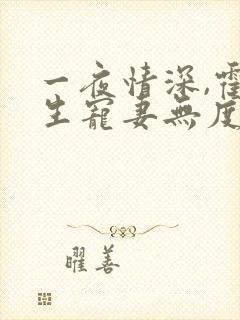 一夜情深,霍
生寵妻無度
曜善